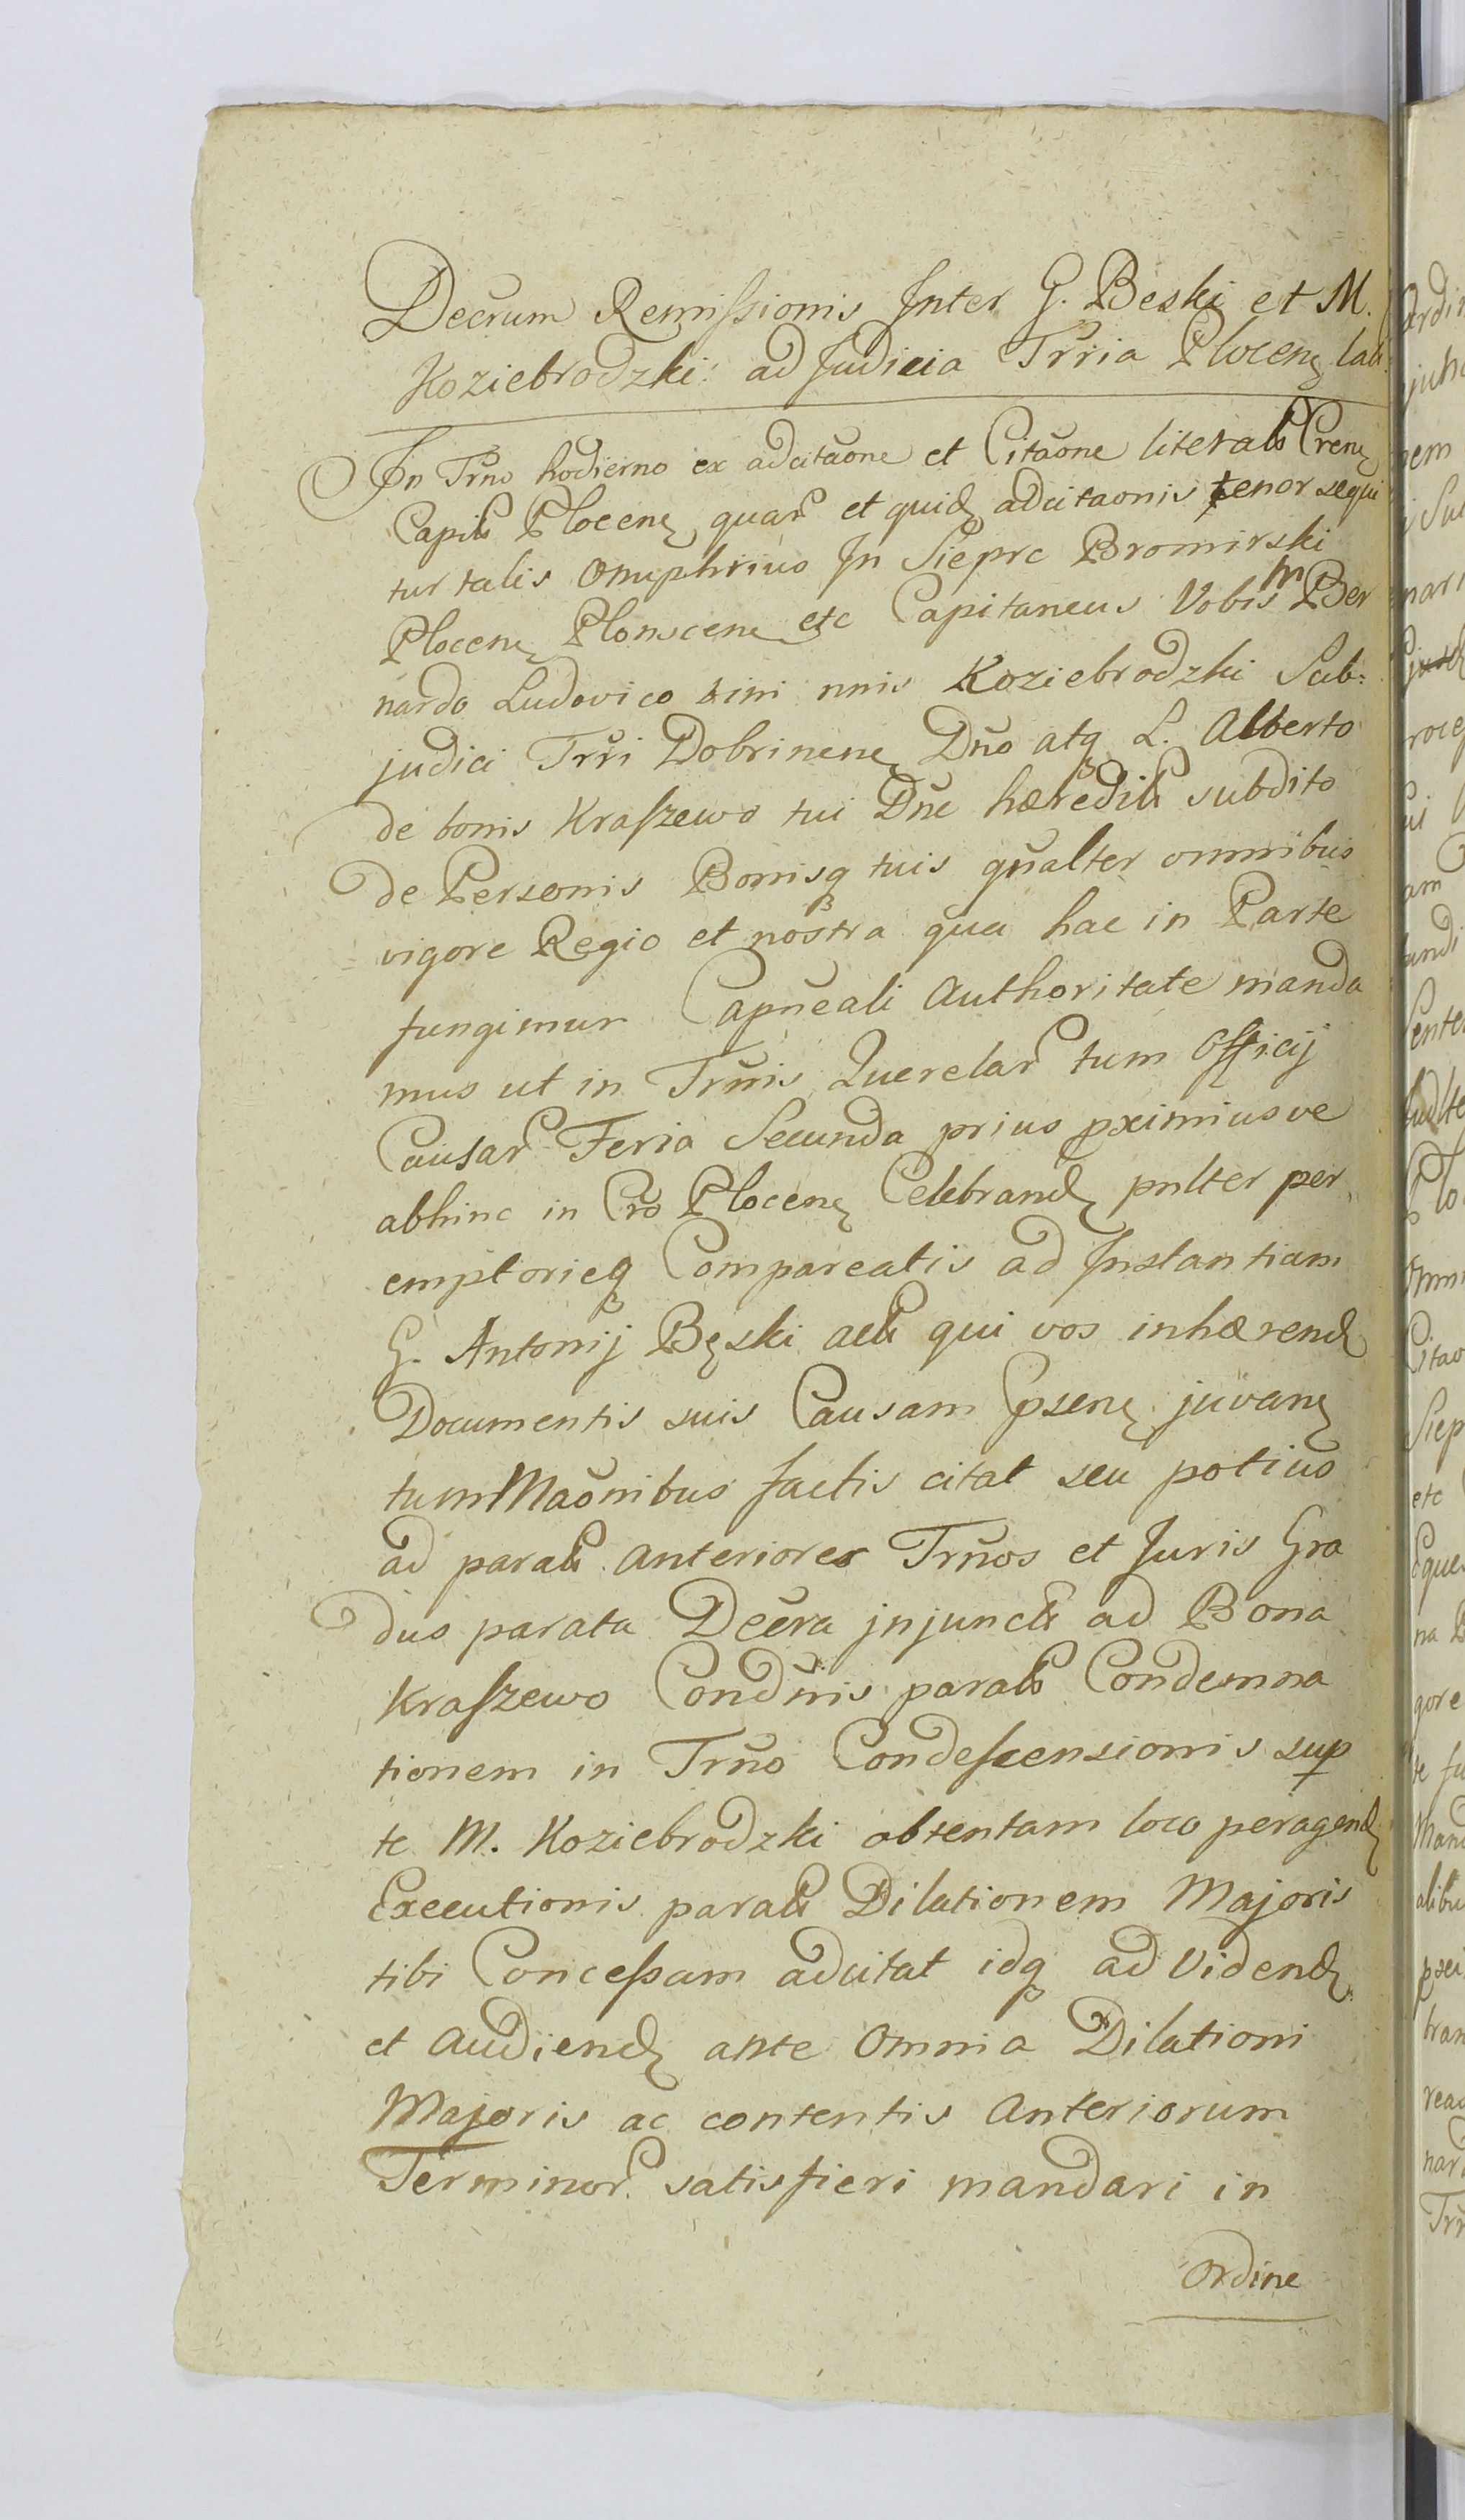 Decrum Remissionis Inter G. Beski et M.
Koziebrodzki ad Judicia Trria Plocen lat
In Trno hodierno ex adcitaone et Citaone literali Cren
Capli Plocen quar et quid adcitaonis tenor sequi
tur talis Onuphrius In Sieprc Bromirski
Plocen Plonscen etc Capitaneus Vobis M Ber
nardo Ludovico bini nnis Koziebrodzki Sub:
judici Trri Dobrinen Dno atq L. Alberto
de bonis Kraszewo tui Dne hæredit subdito
de Personis Bonisq tuis gnalter omnibus
vigore Regio et nostra qua hac in Parte
fungimur Capneali Authoritate manda
mus ut in Trnis Querelar tum Officij
Causar Feria Secunda prius pximiusve
abhinc in Cro Plocen Celebrand pnlter per
emptorieq Compareatis ad Instantiam
G. Antonij Bęski act qui vos inhærend
Documentis suis Causam psen juvan
tum Maonibus factis citat seu potius
ad parat anteriores Trnos et Juris Gra
dus parata Decra injunct ad Bona
Kraszewo Condnis parat Condemna
tionem in Trno Condescensionis sup
te M. Koziebrodzki obtentam loco peragend
Executionis parat Dilationem Majoris
tibi Concessam adcitat idq ad Vidend
et Audiend ante Omnia Dilationi
Majoris ac contentis Anteriorum
Terminor satisfieri mandari in
Ordine